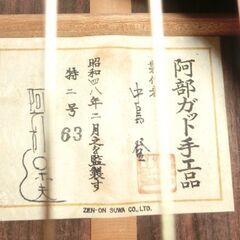 阿部ガット手工品
製作者
中島登
昭和四八年二月之を監製す
特二号
63
ZEN-ON SUWA CO., LTD.